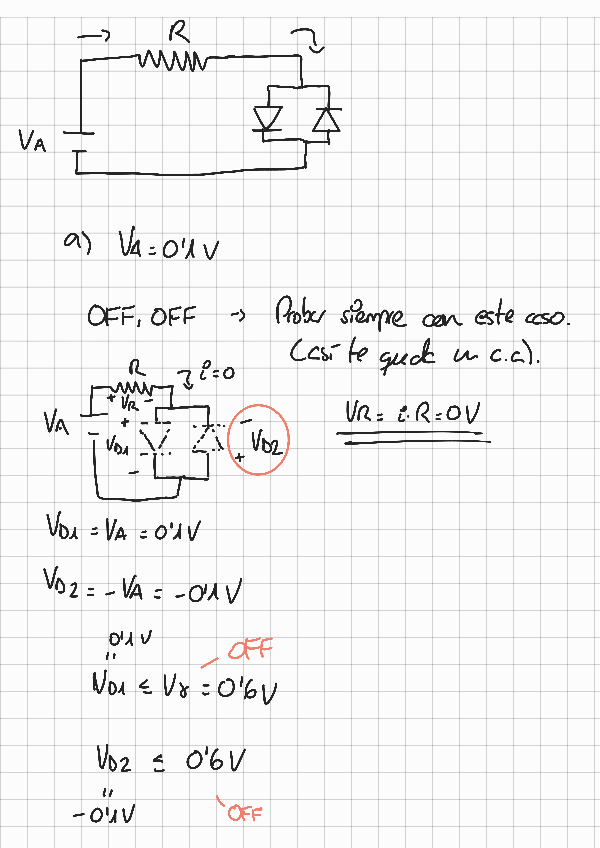 R
VA
a) VA = 0'1 V
OFF, OFF → Probar siempre con este caso.
(casi te queda un c.a).
R
i = 0
+ VR -
VA
+
VD1
-
-
VD2
+
VR = i·R = 0V
VD1 = VA = 0'1 V
VD2 = -VA = -0'1 V
0'1 V
"
OFF
VD1 ≤ Vγ = 0'6 V
VD2 ≤ 0'6 V
"
-0'1 V
OFF